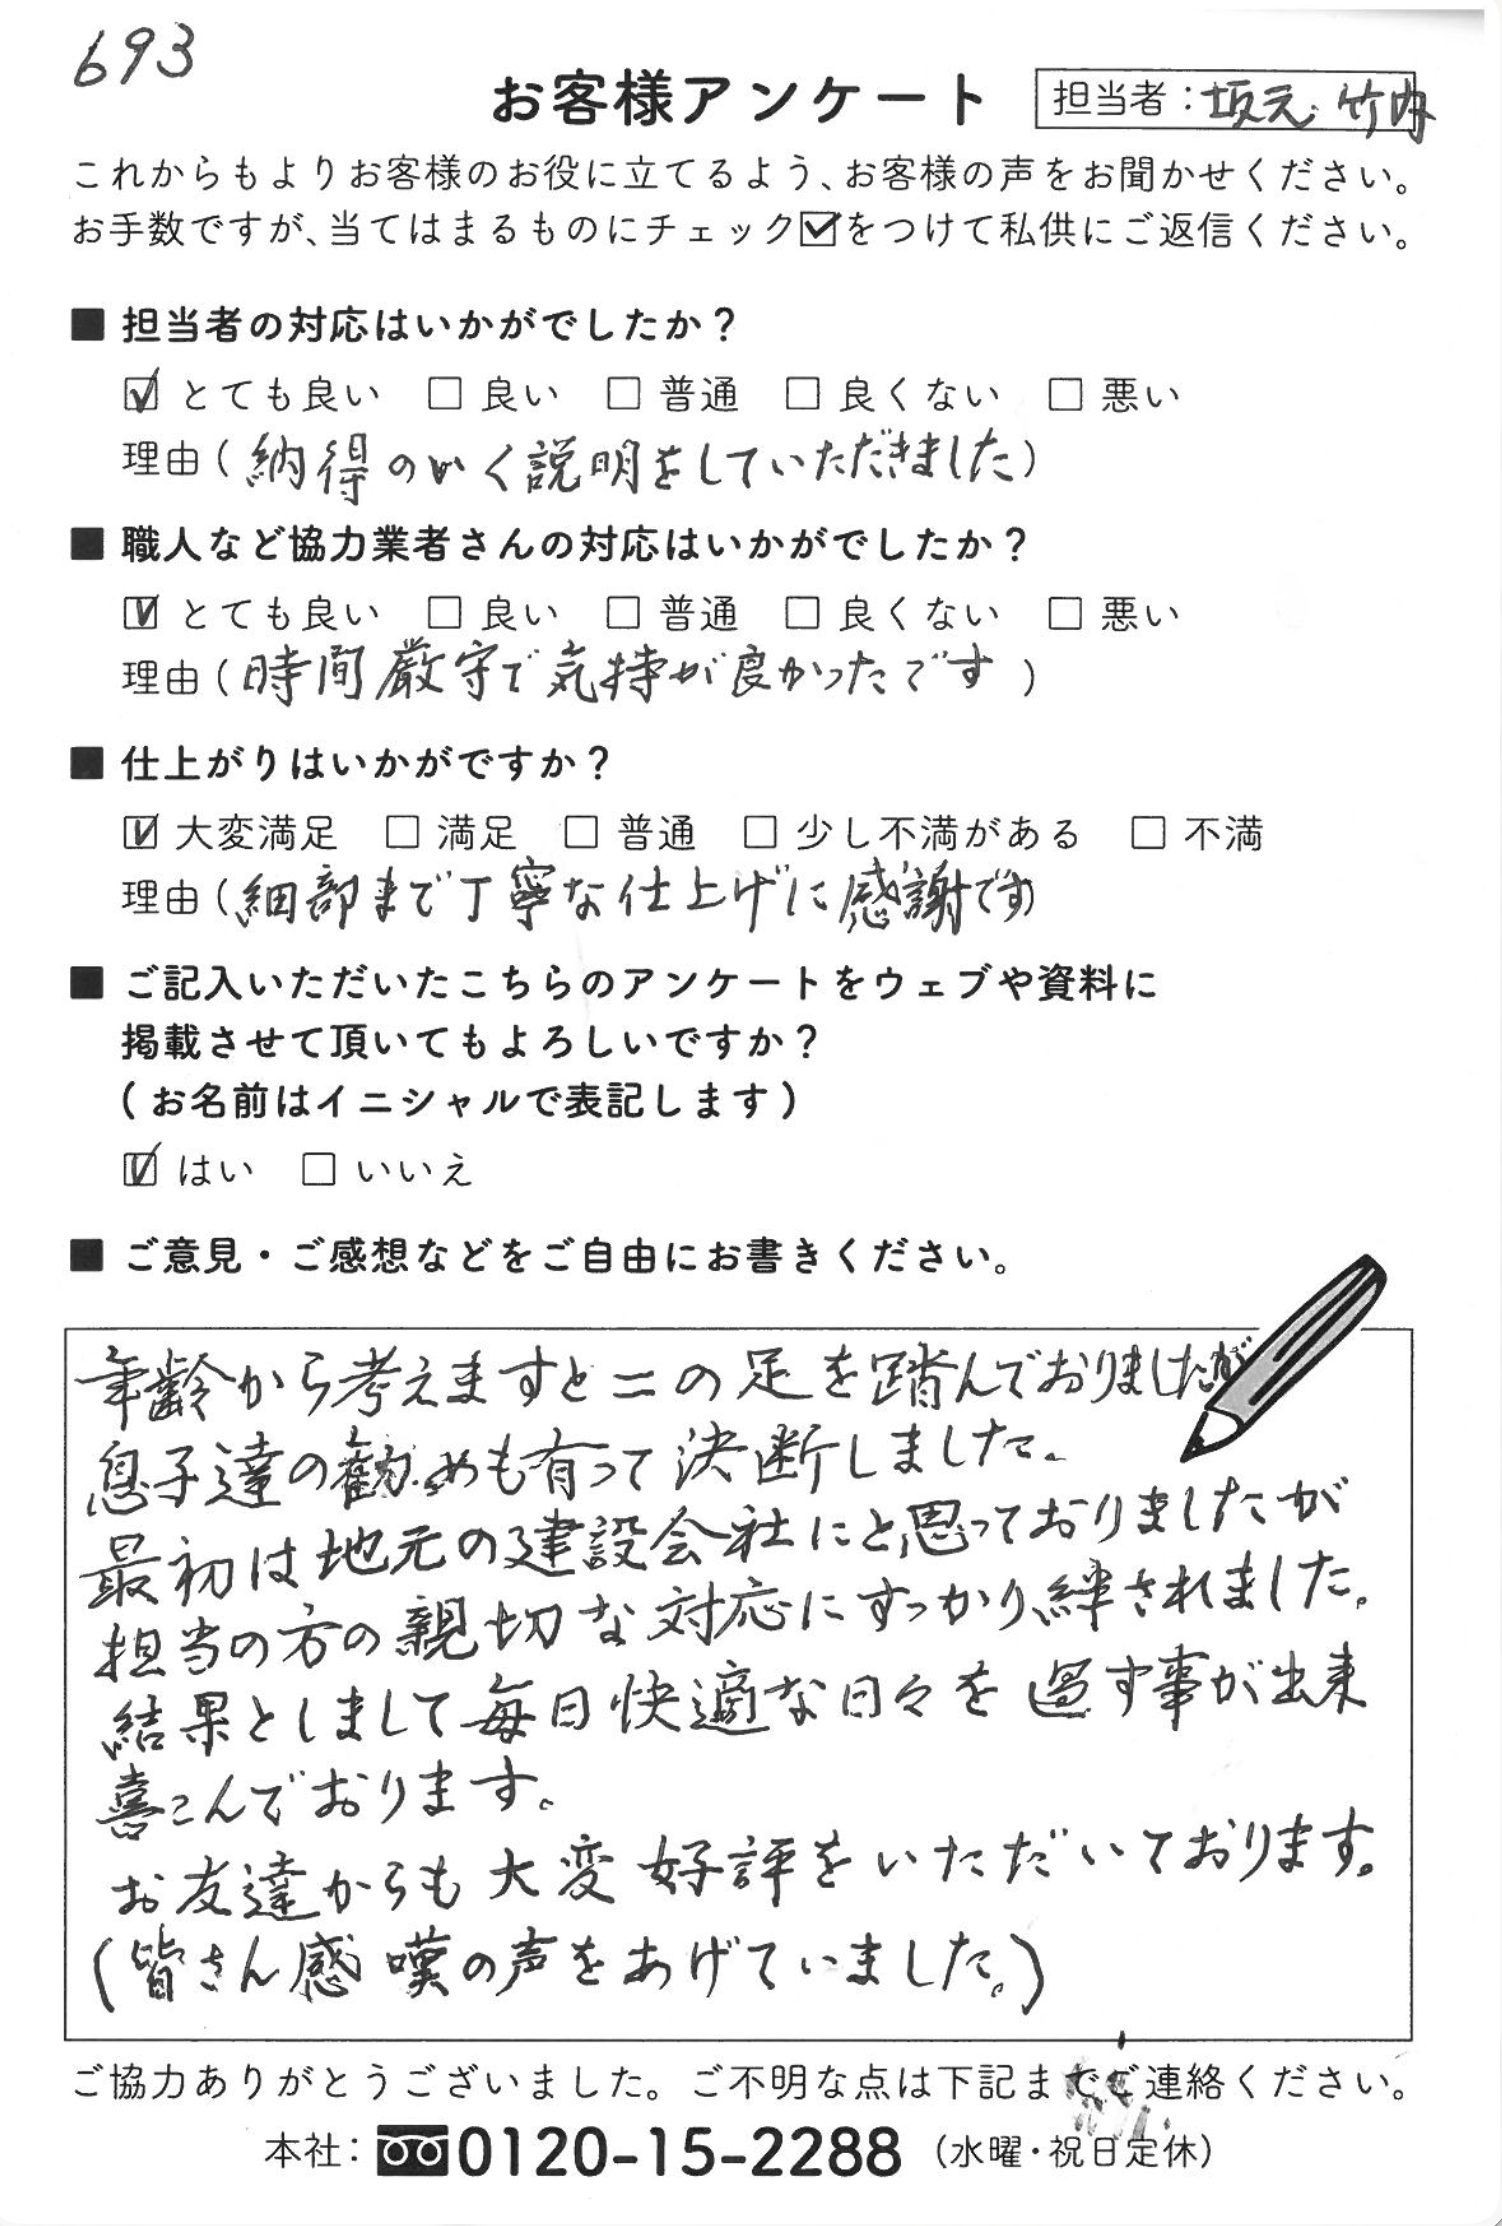 693
お客様アンケート
担当者：坂元、竹内
これからもよりお客様のお役に立てるよう、お客様の声をお聞かせください。
お手数ですが、当てはまるものにチェック☑をつけて私供にご返信ください。
■ 担当者の対応はいかがでしたか？
☑ とても良い □ 良い □ 普通 □ 良くない □ 悪い
理由（納得のいく説明をしていただきました）
■ 職人など協力業者さんの対応はいかがでしたか？
☑ とても良い □ 良い □ 普通 □ 良くない □ 悪い
理由（時間厳守で気持が良かったです）
■ 仕上がりはいかがですか？
☑ 大変満足 □ 満足 □ 普通 □ 少し不満がある □ 不満
理由（細部まで丁寧な仕上げに感謝です）
■ ご記入いただいたこちらのアンケートをウェブや資料に
掲載させて頂いてもよろしいですか？
（お名前はイニシャルで表記します）
☑ はい □ いいえ
■ ご意見・ご感想などをご自由にお書きください。
年齢から考えますと二の足を踏んでおりましたが
息子達の勧めも有って決断しました。
最初は地元の建設会社にと思っておりましたが
担当の方の親切な対応にすっかり絆されました。
結果としまして毎日快適な日々を過す事が出来
喜こんでおります。
お友達からも大変好評をいただいております。
（皆さん感嘆の声をあげていました。）
ご協力ありがとうございました。ご不明な点は下記までご連絡ください。
本社：0120-15-2288（水曜・祝日定休）